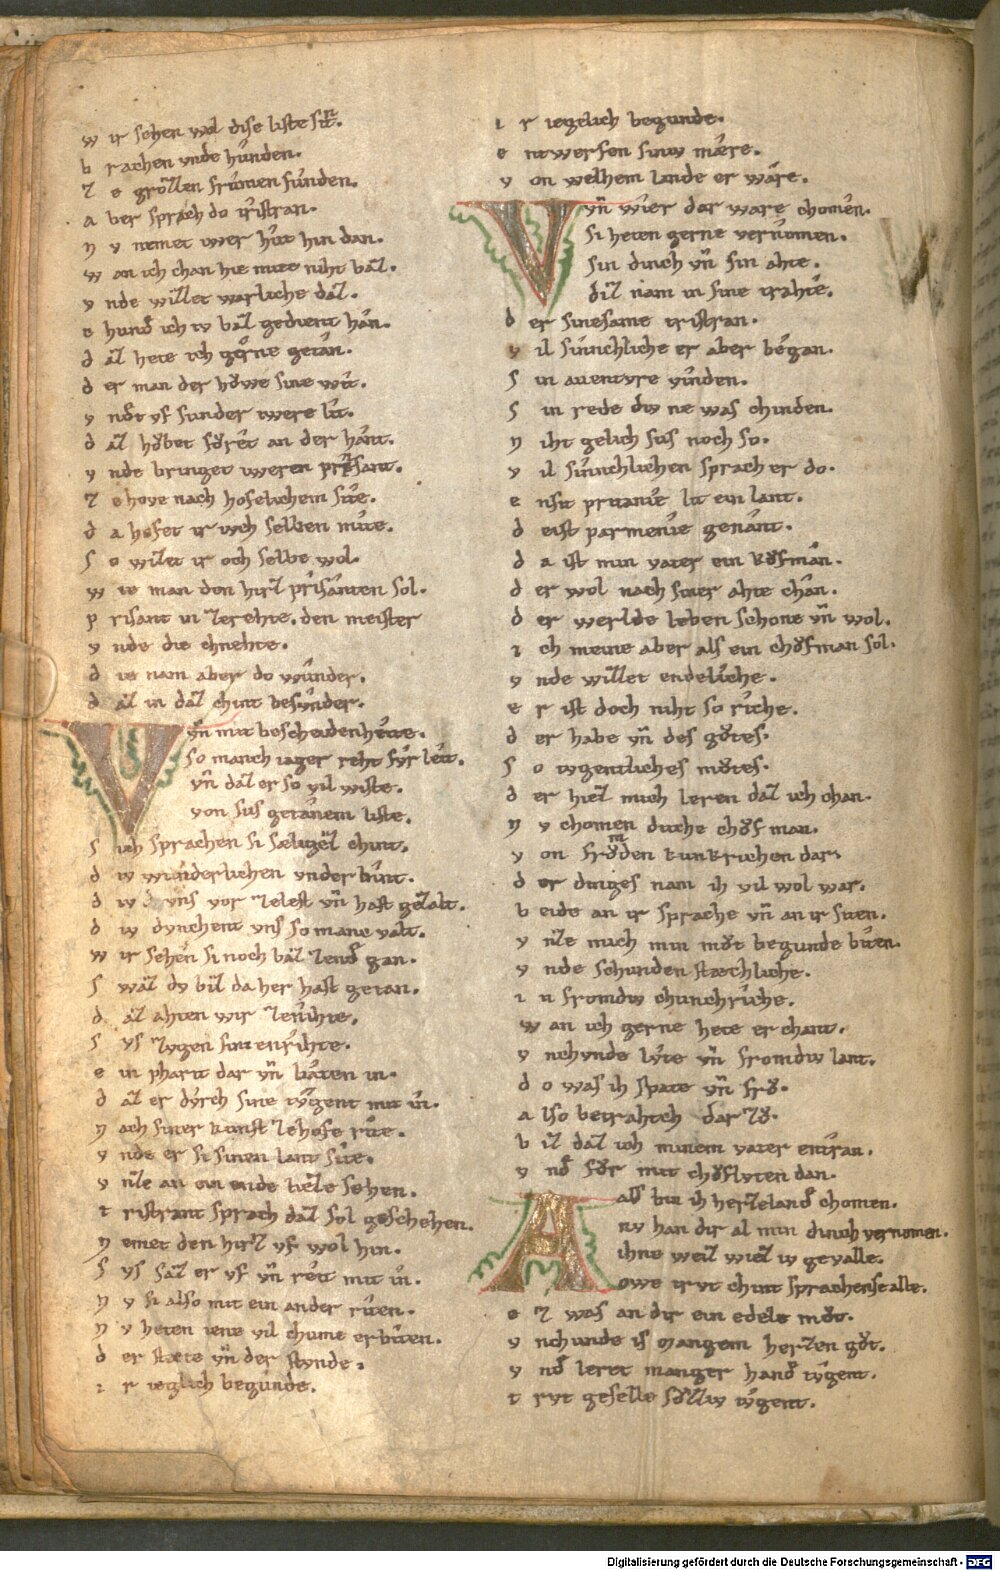 w ir sehen wol dise liste sint.
b rachen vnde hůnden.
z e grózen frůmen funden.
a ber sprach do tristran.
n v nemet iwer hůt hin dan.
w an ich chan hie mite niht baz.
v nde wizzet warliche daz.
chund ich iv baz gedient han.
d az hete ich gerne getan.
d er man der hŏwe sine wit.
v nd vf sunder iwere lit.
d az hŏbet fŏret an der hant.
v nde bringet iweren prisant.
z e hove nach hofelichem site.
d a hofet ir ivch selben mite.
s o wizet ir och selbe wol.
w ie man den hirz prisanten sol.
p risant in ze rehte. den meister
v nde die chnehte.
d ie nam aber do wunder.
d az in daz chint besvnder.
Vn̄ mit bescheidenheite.
so manch iager reht fvr leit.
vn̄ daz er so vil wiste.
von sus getanem liste.
s ich sprachen si sæligez chint.
d iv wunderlichen vnderbint.
d iv dv vns vor zelest vn̄ hast gezalt.
d iv dvnchent vns so manc valt.
w ir sehen si noch baz ze end gan.
s waz dv biz da her hast getan.
d az ahten wir ze nihte.
s vs zvgen sim enrihte.
e in pharit dar vn̄ baten in.
d az er dvrch sine tvgent mit in.
n ach siner kunst ze hofe rite.
v nde er si sinen lant site.
v nze an ein ende lieze sehen.
t ristrant sprach daz sol geschehen.
n emet den hirz vf wol hin.
s vs saz er vf vn̄ reit mit in.
n v si also mit ein ander riten.
n v heten iene vil chume erbiten.
d er stæte vn̄ der stvnde.
i r ieglich begunde.
i r iegelich begunde.
e ntwerfen siniv mære.
v on welhem lande er wære.
Vn̄ wier dar ware chomen.
si heten gerne vernomen.
sin dinch vn̄ sin ahte.
diz nam in sine trahte.
d er sinesame tristran.
v il sinnchliche er aber began.
s in aventvre vinden.
s in rede div ne was chinden.
n iht gelich sus noch so.
v il sinnchlichen sprach er do.
e nsit pritanie lit ein lant.
d eist parmenie genant.
d a ist min vater ein kŏfman.
d er wol nach siner ahte chan.
d er werlde leben schone vn̄ wol.
i ch meine aber als ein chŏfman sol.
v nde wizzet endeliche.
e r ist doch niht so riche.
d er habe vn̄ des gŏtes.
s o tvgentliches mŏtes.
d er hiez mich leren daz ich chan.
n v chomen diche chŏfman.
v on frŏmden kunkrichen dar.
d er dinges nam ih vil wol war.
b eide an ir sprache vn̄ an ir siten.
v nze mich min mŏt begunde biten.
v nde schunden stæchliche.
i n fromdiv chunchriche.
w an ich gerne hete erchant.
v nchvnde lvte vn̄ fromdiv lant.
d o was ih spate vn̄ frŏ.
a lso betrahtch dar zŏ.
b iz daz ich minem vater entran.
v nd fŏr mit chŏflvten dan.
Als bin ih herzeland chomen.
nv han dir al min dinch vernomen.
ihne weiz wiez iv gevalle.
owe trvt chint sprachense alle.
e z was an dir ein edele mŏt.
v nchunde is mangem herzen gŏt.
v nd leret manger hand tvgent.
t rvt geselle sŏziv ivgent.